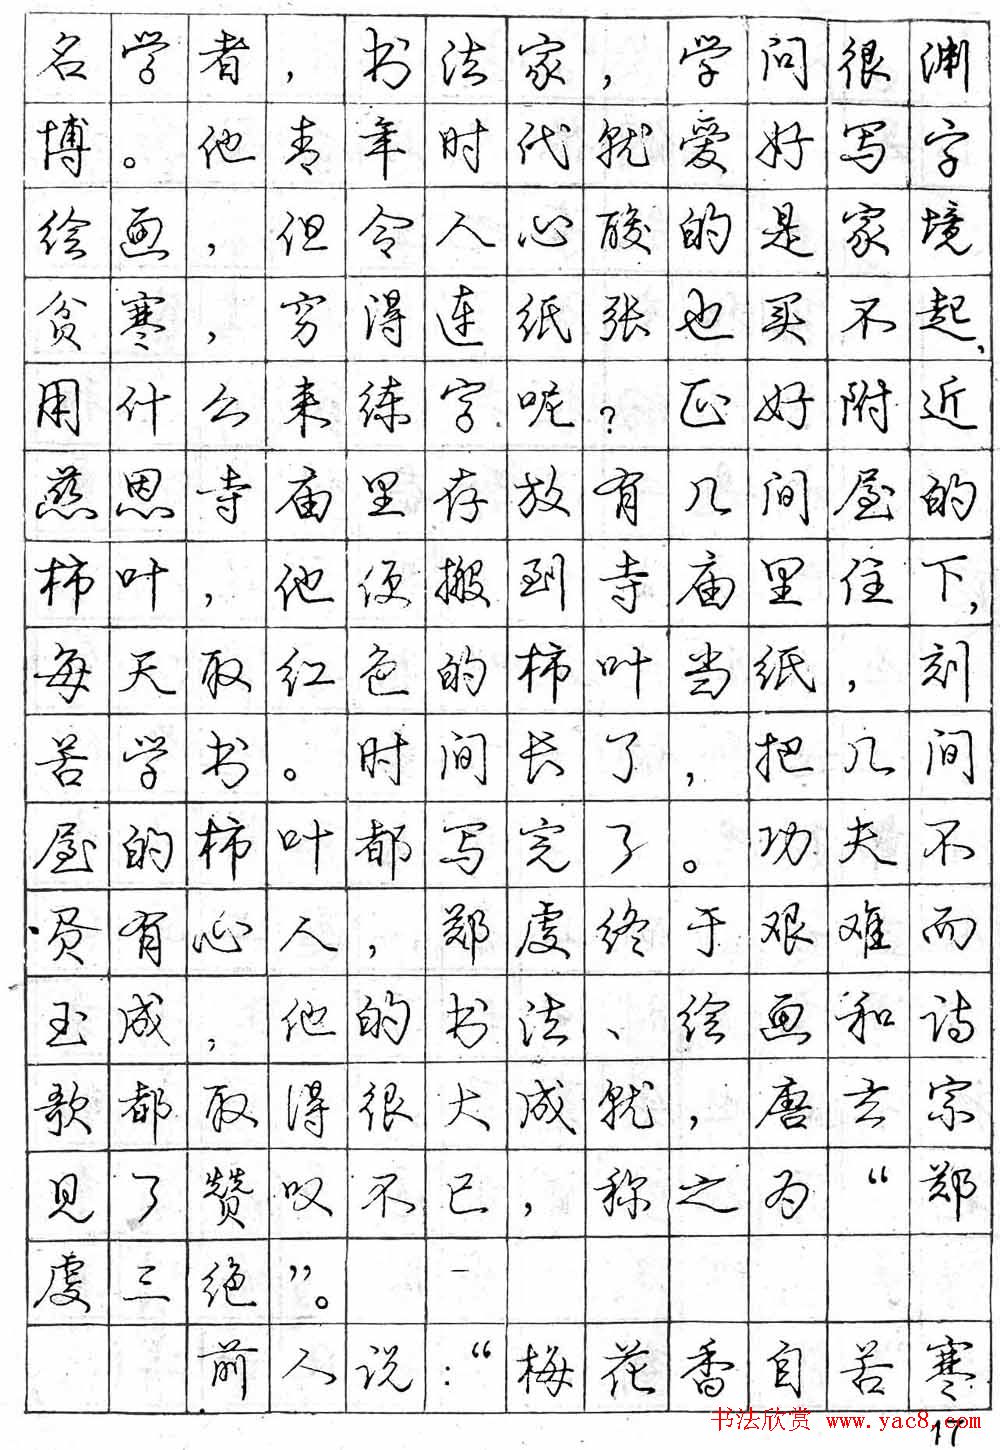 名学者，书法家，学问很渊
博。他青年时代就爱好写字
绘画，但令人心酸的是家境
贫寒，穷得连纸张也买不起，
用什么来练字呢？正好附近
慈恩寺庙里存放有几间屋的
柿叶，他便搬到寺庙里住下，
每天取红色的柿叶当纸，刻
苦学书。时间长了，把几间
屋的柿叶都写完了。功夫不
负有心人，郑虔终于艰难而
玉成，他的书法、绘画和诗
歌都取得很大成就，唐玄宗
见了赞叹不已，称之为“郑
虔三绝”。
前人说：“梅花香自苦寒
书法欣赏 www.yac8.com
17